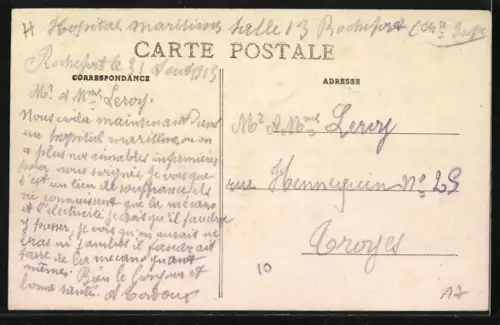 Hopital maritime Salle 13 Rochefort (Chte Infre
CARTE POSTALE
Rochefort le 31 Aout 1915
CORRESPONDANCE
ADRESSE
Mr. et Mme Leroy.
Nous voila maintenant dans
un hopital maritime ou on
a plus nos aimables infirmieres
pour nous soigner je vois que
c'est un lieu de souffrance ils
ne connaissent que la mecano
et l'electricité je crois que il faudra
y passer, je vois qu'on aurait ne
bras ni jambes il faudrait
faire de la mecano quant
mêmes. Bien le bonjour et
bonne santé.
Mr & Mme Leroy
rue Hennequin No 29
Troyes
10